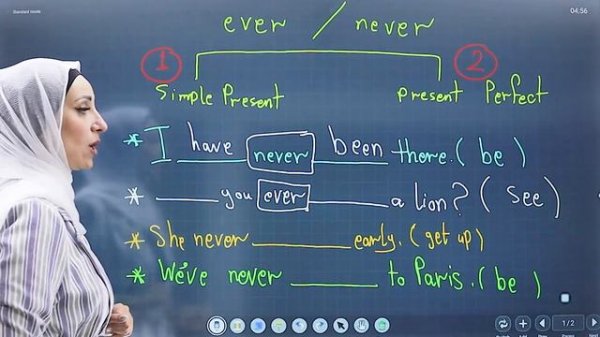 Standard mode
04:56
ever / never
1 2
Simple Present present Perfect
* I have never been there. (be)
* ____ you ever ____ a lion? (see)
* She never ____ early. (get up)
* We've never ____ to Paris. (be)
1/2